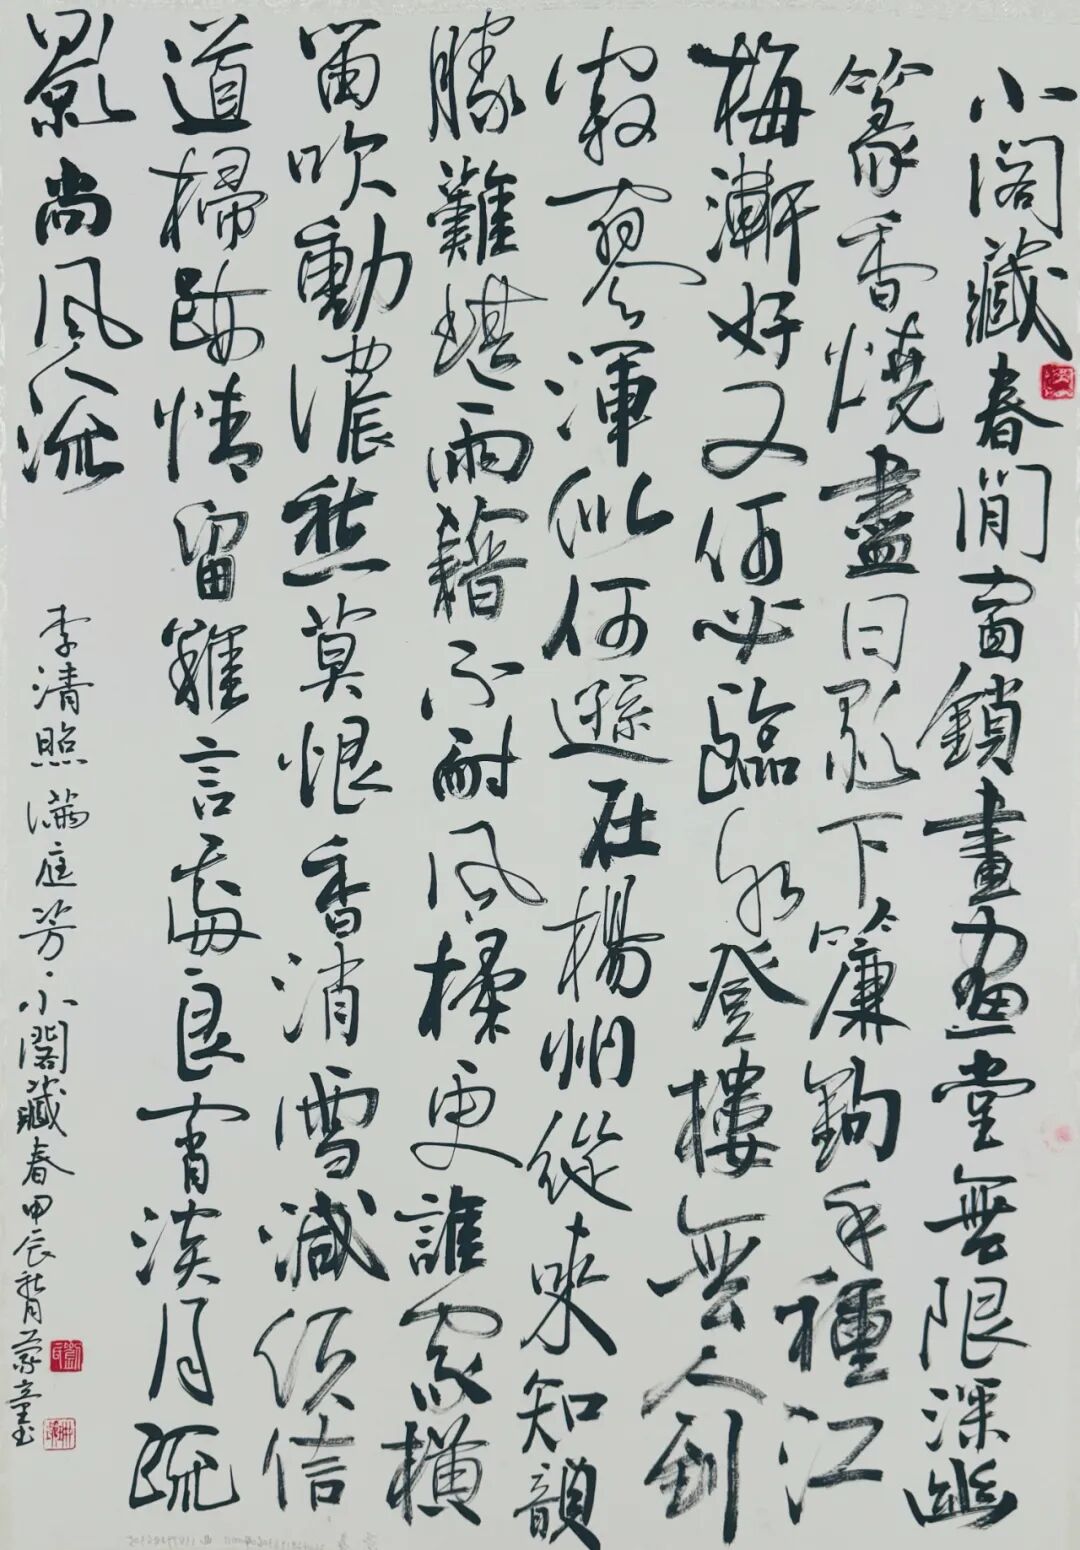 小閣藏春閒窗鎖晝畫堂無限深幽
篆香燒盡日影下簾鉤手種江
梅漸好又何必臨水登樓無人到
寂寥渾似何遜在楊州從來知韻
勝難堪雨藉不耐風揉更誰家橫
笛吹動濃愁莫恨香消雪減須信
道掃跡情留難言處良宵淡月疏
影尚風流
李清照滿庭芳·小閣藏春甲辰秋月